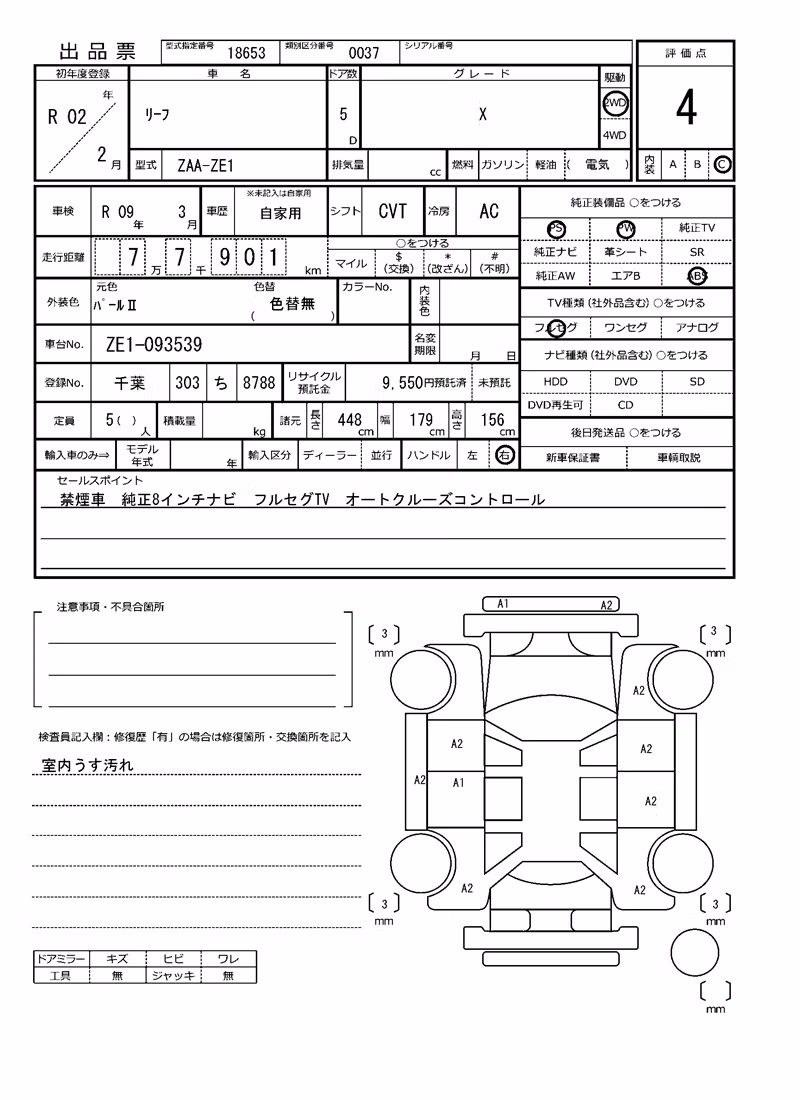 出品票 型式指定番号 18653 類別区分番号 0037 シリアル番号
評価点
4
内装 A B C
初年度登録 車名 ドア数 グレード 駆動
R 02 年 2 月 リーフ 5 D X 2WD 4WD
型式 ZAA-ZE1 排気量 cc 燃料 ガソリン 軽油 ( 電気 )
車検 R 09 年 3 月 車歴 ※未記入は自家用 自家用 シフト CVT 冷房 AC
走行距離 7 万 7 千 9 0 1 km ○をつける マイル $ (交換) * (改ざん) # (不明)
外装色 元色 パールⅡ 色替 ( 色替無 ) カラーNo. 内装色
車台No. ZE1-093539 名変期限 月 日
登録No. 千葉 303 ち 8788 リサイクル預託金 9,550円預託済 未預託
定員 5 ( ) 人 積載量 kg 諸元 長さ 448 cm 幅 179 cm 高さ 156 cm
輸入車のみ⇒ モデル年式 年 輸入区分 ディーラー 並行 ハンドル 左 右
純正装備品 ○をつける
PS PW 純正TV
純正ナビ 革シート SR
純正AW エアB ABS
TV種類(社外品含む)○をつける
フルセグ ワンセグ アナログ
ナビ種類(社外品含む)○をつける
HDD DVD SD
DVD再生可 CD
後日発送品 ○をつける
新車保証書 車輌取説
セールスポイント
禁煙車 純正8インチナビ フルセグTV オートクルーズコントロール
注意事項・不具合箇所
検査員記入欄:修復歴「有」の場合は修復箇所・交換箇所を記入
室内うす汚れ
ドアミラー キズ ヒビ ワレ
工具 無 ジャッキ 無
A1 A2
[ 3 ] mm [ 3 ] mm
A2
A2 A2
A2 A1 A2
A2 A2
[ 3 ] mm [ 3 ] mm
[ ] mm